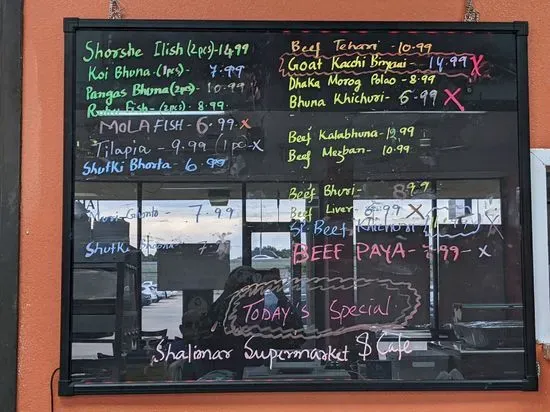 Shorshe Ilish (2pcs)-14.99
Koi Bhuna-(1pcs)- 7.99
Pangas Bhuna(2pcs) - 10.99
Ruhu Fish-(2pcs)- 8.99
MOLA FISH - 6.99 - x
Tilapia - 9.99 (1 pc- X
Shutki Bhorta - 6.99
- 7.99
Shutki
Beef Tehari - 10.99
Goat Kacchi Biryani - 14.99 X
Dhaka Morog Polao - 8.99
Bhuna Khichuri - 6.99 X
Beef Kalabhuna-
Beef Mezban - 10.99
Beef Bhuri -
Beef Liver - 6.99 X
Beef Khichuri
BEEF PAYA - 7.99 - X
TODAY'S Special
Shalimar Supermarket & Cafe